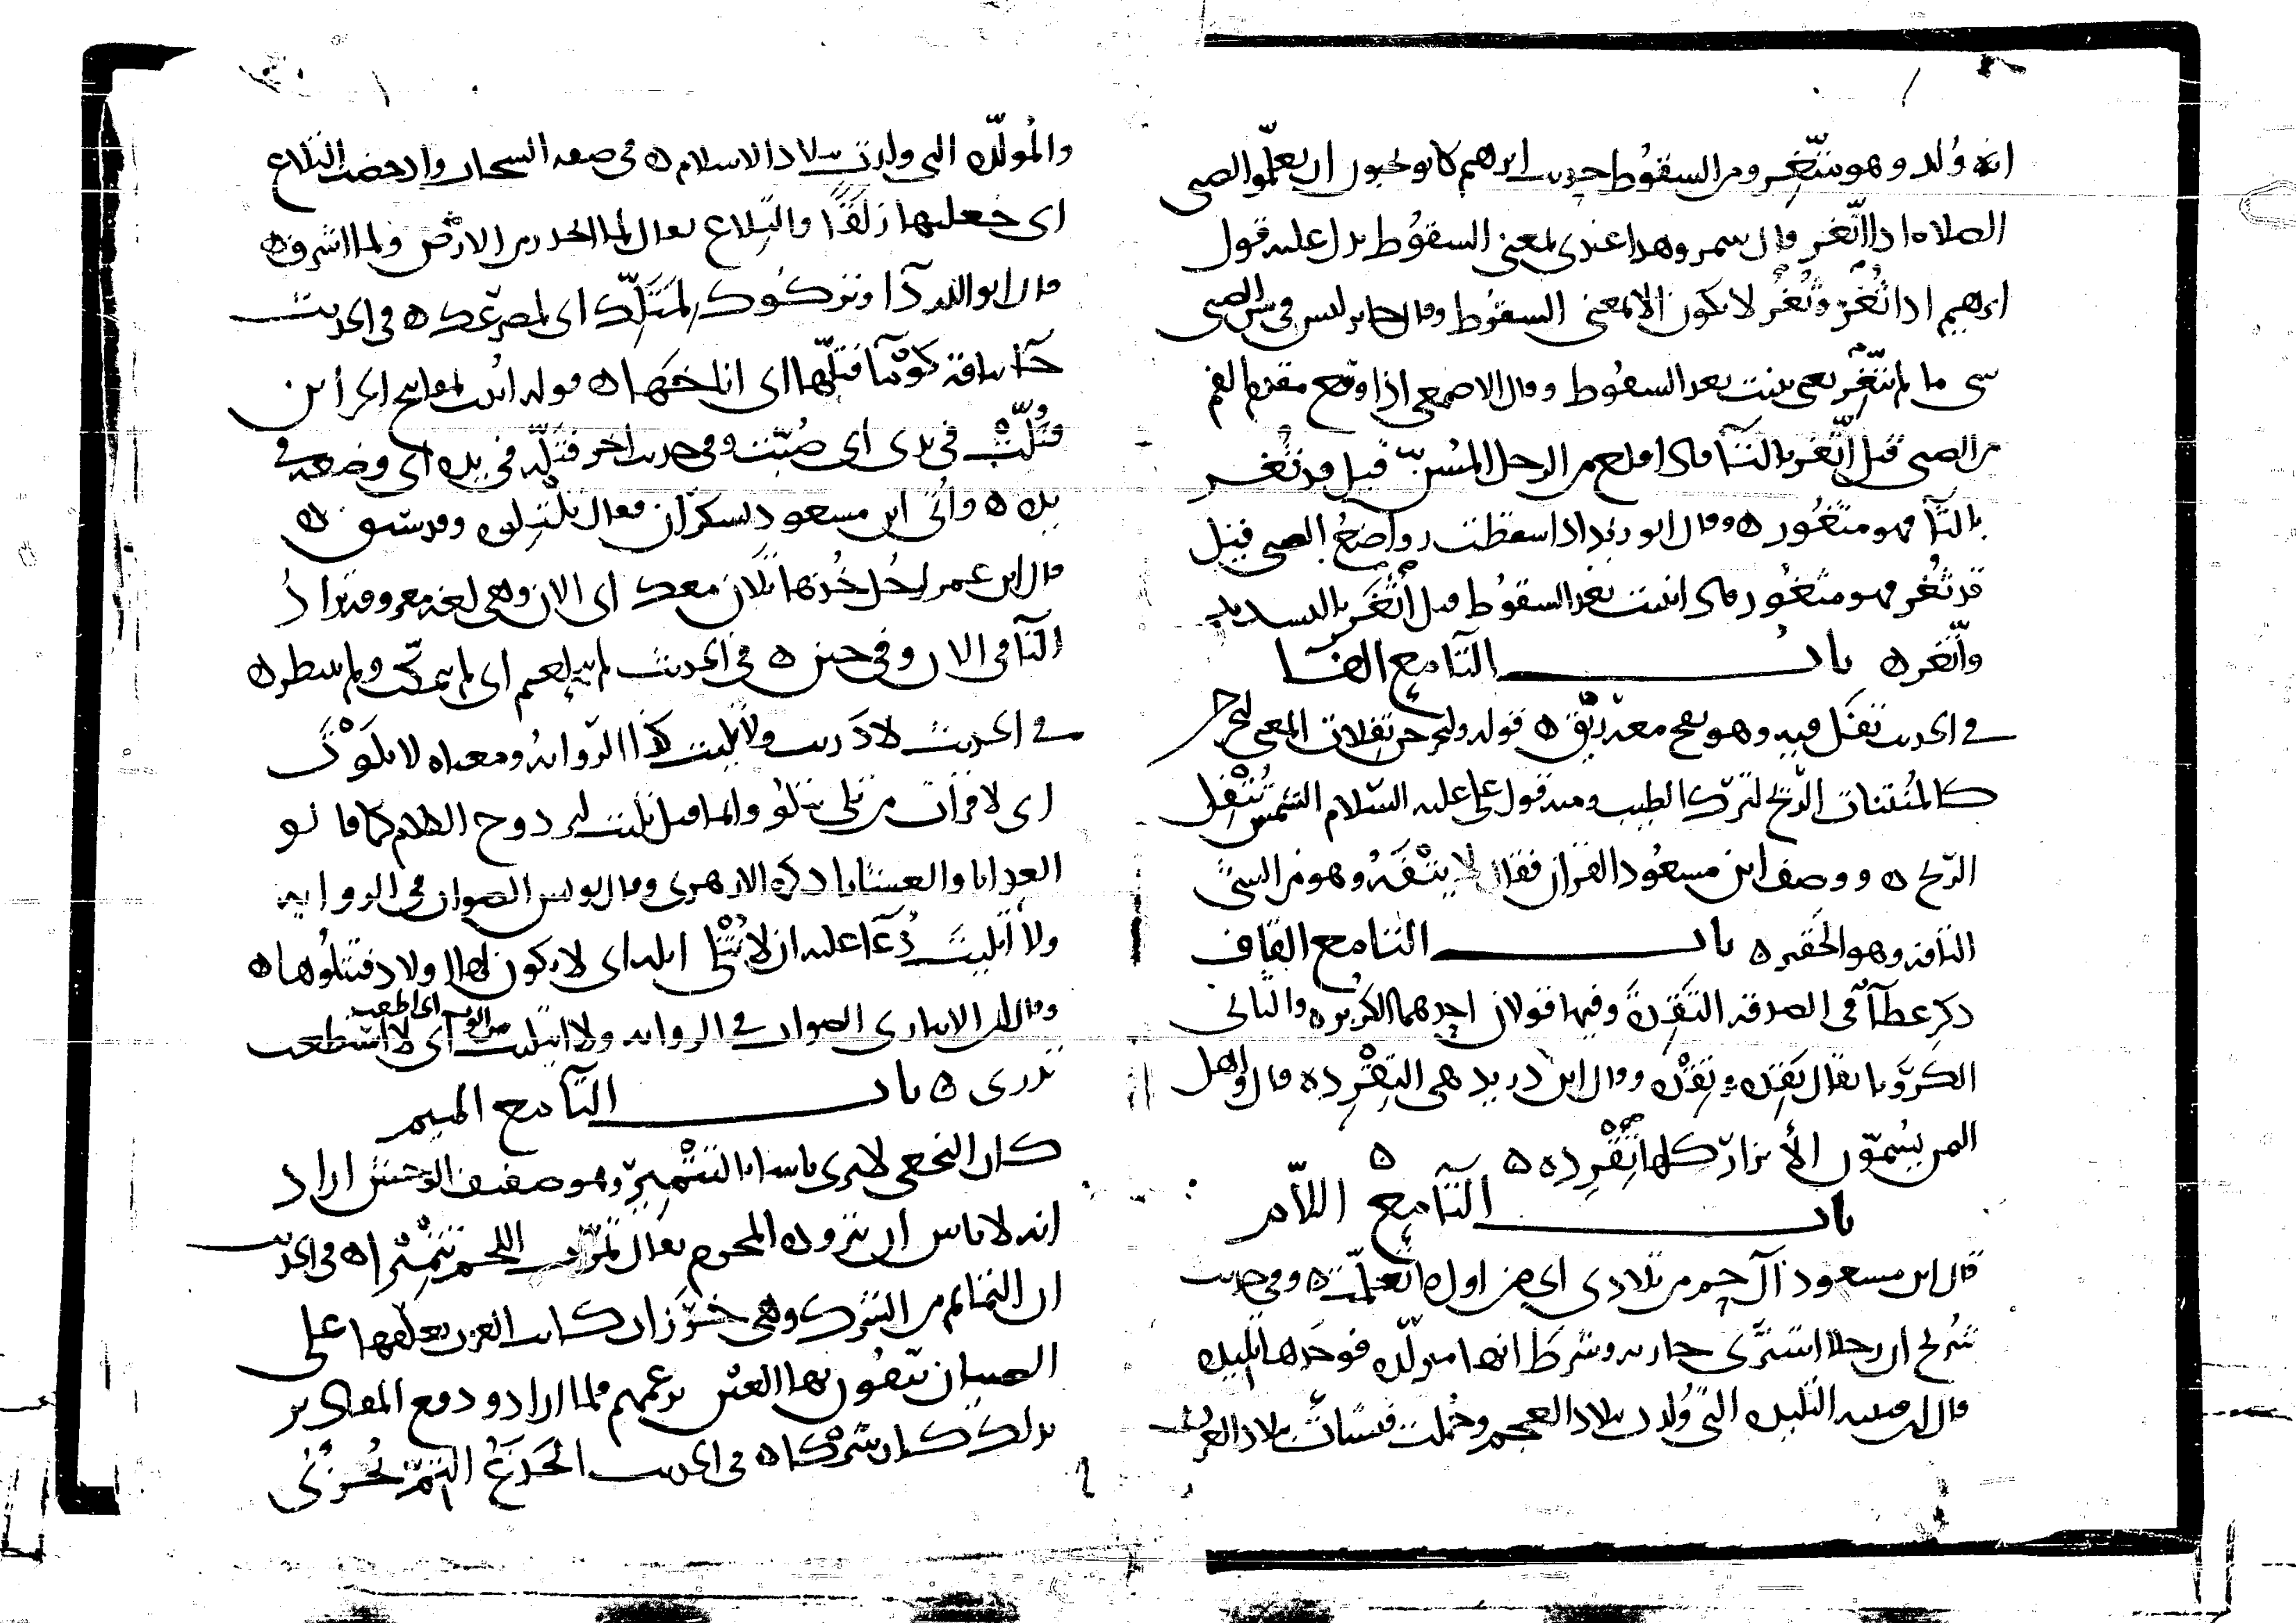 انه وُلد وهو مثّغر ومن السقوط حديث ابرهيم كانوا يحبون ان يعلّموا الصبي
الصلاه اذا اثّغر قال شمر وهذا عندي بمعنى السقوط يدل عليه قول
ابرهيم اذا ثُغر وثُغر لا يكون الا بمعنى السقوط وقال جابر ليس في سن الصبي
شي ما لم يثّغر يعني ينبت بعد السقوط وقال الاصمعي اذا وقع مقدم الفم
من الصبي قيل اتّغر بالتآ فاذا قلع من الرجل المسنّ قيل قد ثُغر
بالثآ فهو مثغور ه وقال ابو زيد اذا سقطت رواضع الصبي قيل
قد ثُغر فهو مثغور فاذا نبتت بعد السقوط قيل اثّغر بالتشديد
واتّغر ه باب التآ مع الفا
في الحديث تفل فيه وهو نفخ معه ريق ه قوله وليخرجن تفلات المعنى ليخرجن
كالمنتنات الريح لترك الطيب ومنه قول علي عليه السّلام الشمس تُتْفِل
الريح ه ووصف ابن مسعود القران فقال لا يتْفَه وهو من الشي
التافه وهو الحقير ه باب التا مع القاف
ذكر عطآ في الصدقه التقْدة وفيها قولان احدهما الكزبره والثاني
الكرويا يقال تَقِده وتِقْده وقال ابن دريد هي التِقْرِده قال واهل
اليمن يسمّون الأبزار كلها تِقْرِده ه ه
باب التآ مع اللاّم
قال ابن مسعود آل حم من تلادي اي من اول ما تعلّمت ه وفي حديث
شريح ان رجلا اشترى جاريه وشرط انها مولّده فوجدها تليده
قال ابن قتيبه التليده التي وُلدت ببلاد العجم وحُملت فنشأت ببلاد العرب
والمُولّده التي ولدت ببلاد الاسلام ه في صفه السحاب وادحضت التلاع
اي جعلتها زلَقًا والتِلاع يقال لما انحدر من الارض ولما اشرف ه
قال ابو الدردآ وتركوك لمَتَلّك اي لمصرعك ه في الحديث
جآ بناقة كومآ فتلّها اي اناخها ه قوله اتيت بمفاتيح خزاين
فتُلّت في يدي اي صُبّت وفي حديث اخر فتلّه في يده اي وضعه في
يده ه وأُتي ابن مسعود بسكران فقال تلْتِلوه ه
قال ابن عمر لرجل خُذها تلان معك اي الان وهي لغه معروفه تزاد
التآ في الان وفي حين ه في الحديث لم يتلعثم اي لم يتمكّث ولم ينتظر ه
في الحديث لا دريت ولا تليت كذا الروايه ومعناه لا تلوت
اي لا قرات من تلى يتلو وانما قيل تليت ليزدوج الكلام كما قالو
الغدايا والعشايا ذكره الازهري وقال يونس الصواب في الروايه
ولا أتليت دُعآ عليه ان لا تُتْلي ابله اي لا يكون لها اولاد فتتلوها ه
وقال ابن الانباري الصواب في الروايه ولا ائتليت اي لا استطعت
تدري ه باب التآ مع الميم
كان النخعي لا يرى باسا بالتتمير وهو صفيف الوحش اراد
انه لا باس ان يتزوده المحرم يقال تمّرت اللحم تتميرا ه في الحديث
ان التمايم من الشرك وهي خرزات كانت العرب تعلقها على
الصبيان يتقون بها العين بزعمهم فلما ارادو دفع المقادير
بذلك كان شركا ه في الحديث الجَذع التِمّ يُجزئ